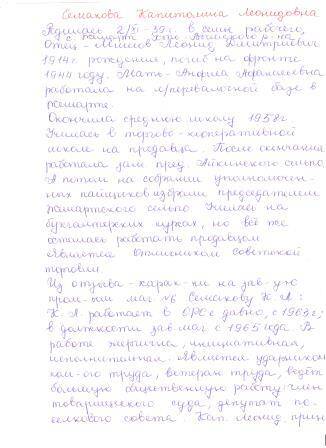 Семакова Капитолина Леонидовна
Родилась 2/XI-39г. в семье рабочего,
Отец - Леонид Дмитриевич
1914г. рождения, погиб на фронте
1944 году. Мать - Андрея Афанасьевна
работала на н/перевалочной базе в
Жешарте.
Окончила среднюю школу 1958г.
Училась в торгово-кооперативной
школе на продавца. После окончания
работала зам. пред. Айкинского сельпо.
А потом на собрании уполномочен-
ных пайщиков избрали председателем
Жешартского сельпо. Училась на
бухгалтерских курсах, но всё же
осталась работать продавцом
Является Отличником Советской
торговли.
Из отзыва-харак-ки на зав-ую
пром-ым маг. №6 Семакову К. Л:
К. Л работает в ОРСе давно, с 1963г;
в должности зав маг с 1965 года. В
работе энергична, инициативная,
исполнительная. Является ударником
ком-ого труда, ветеран труда, ведёт
большую общественную работу: член
товарищеского суда, депутат по-
селкового совета. Кап. Леонид. прин